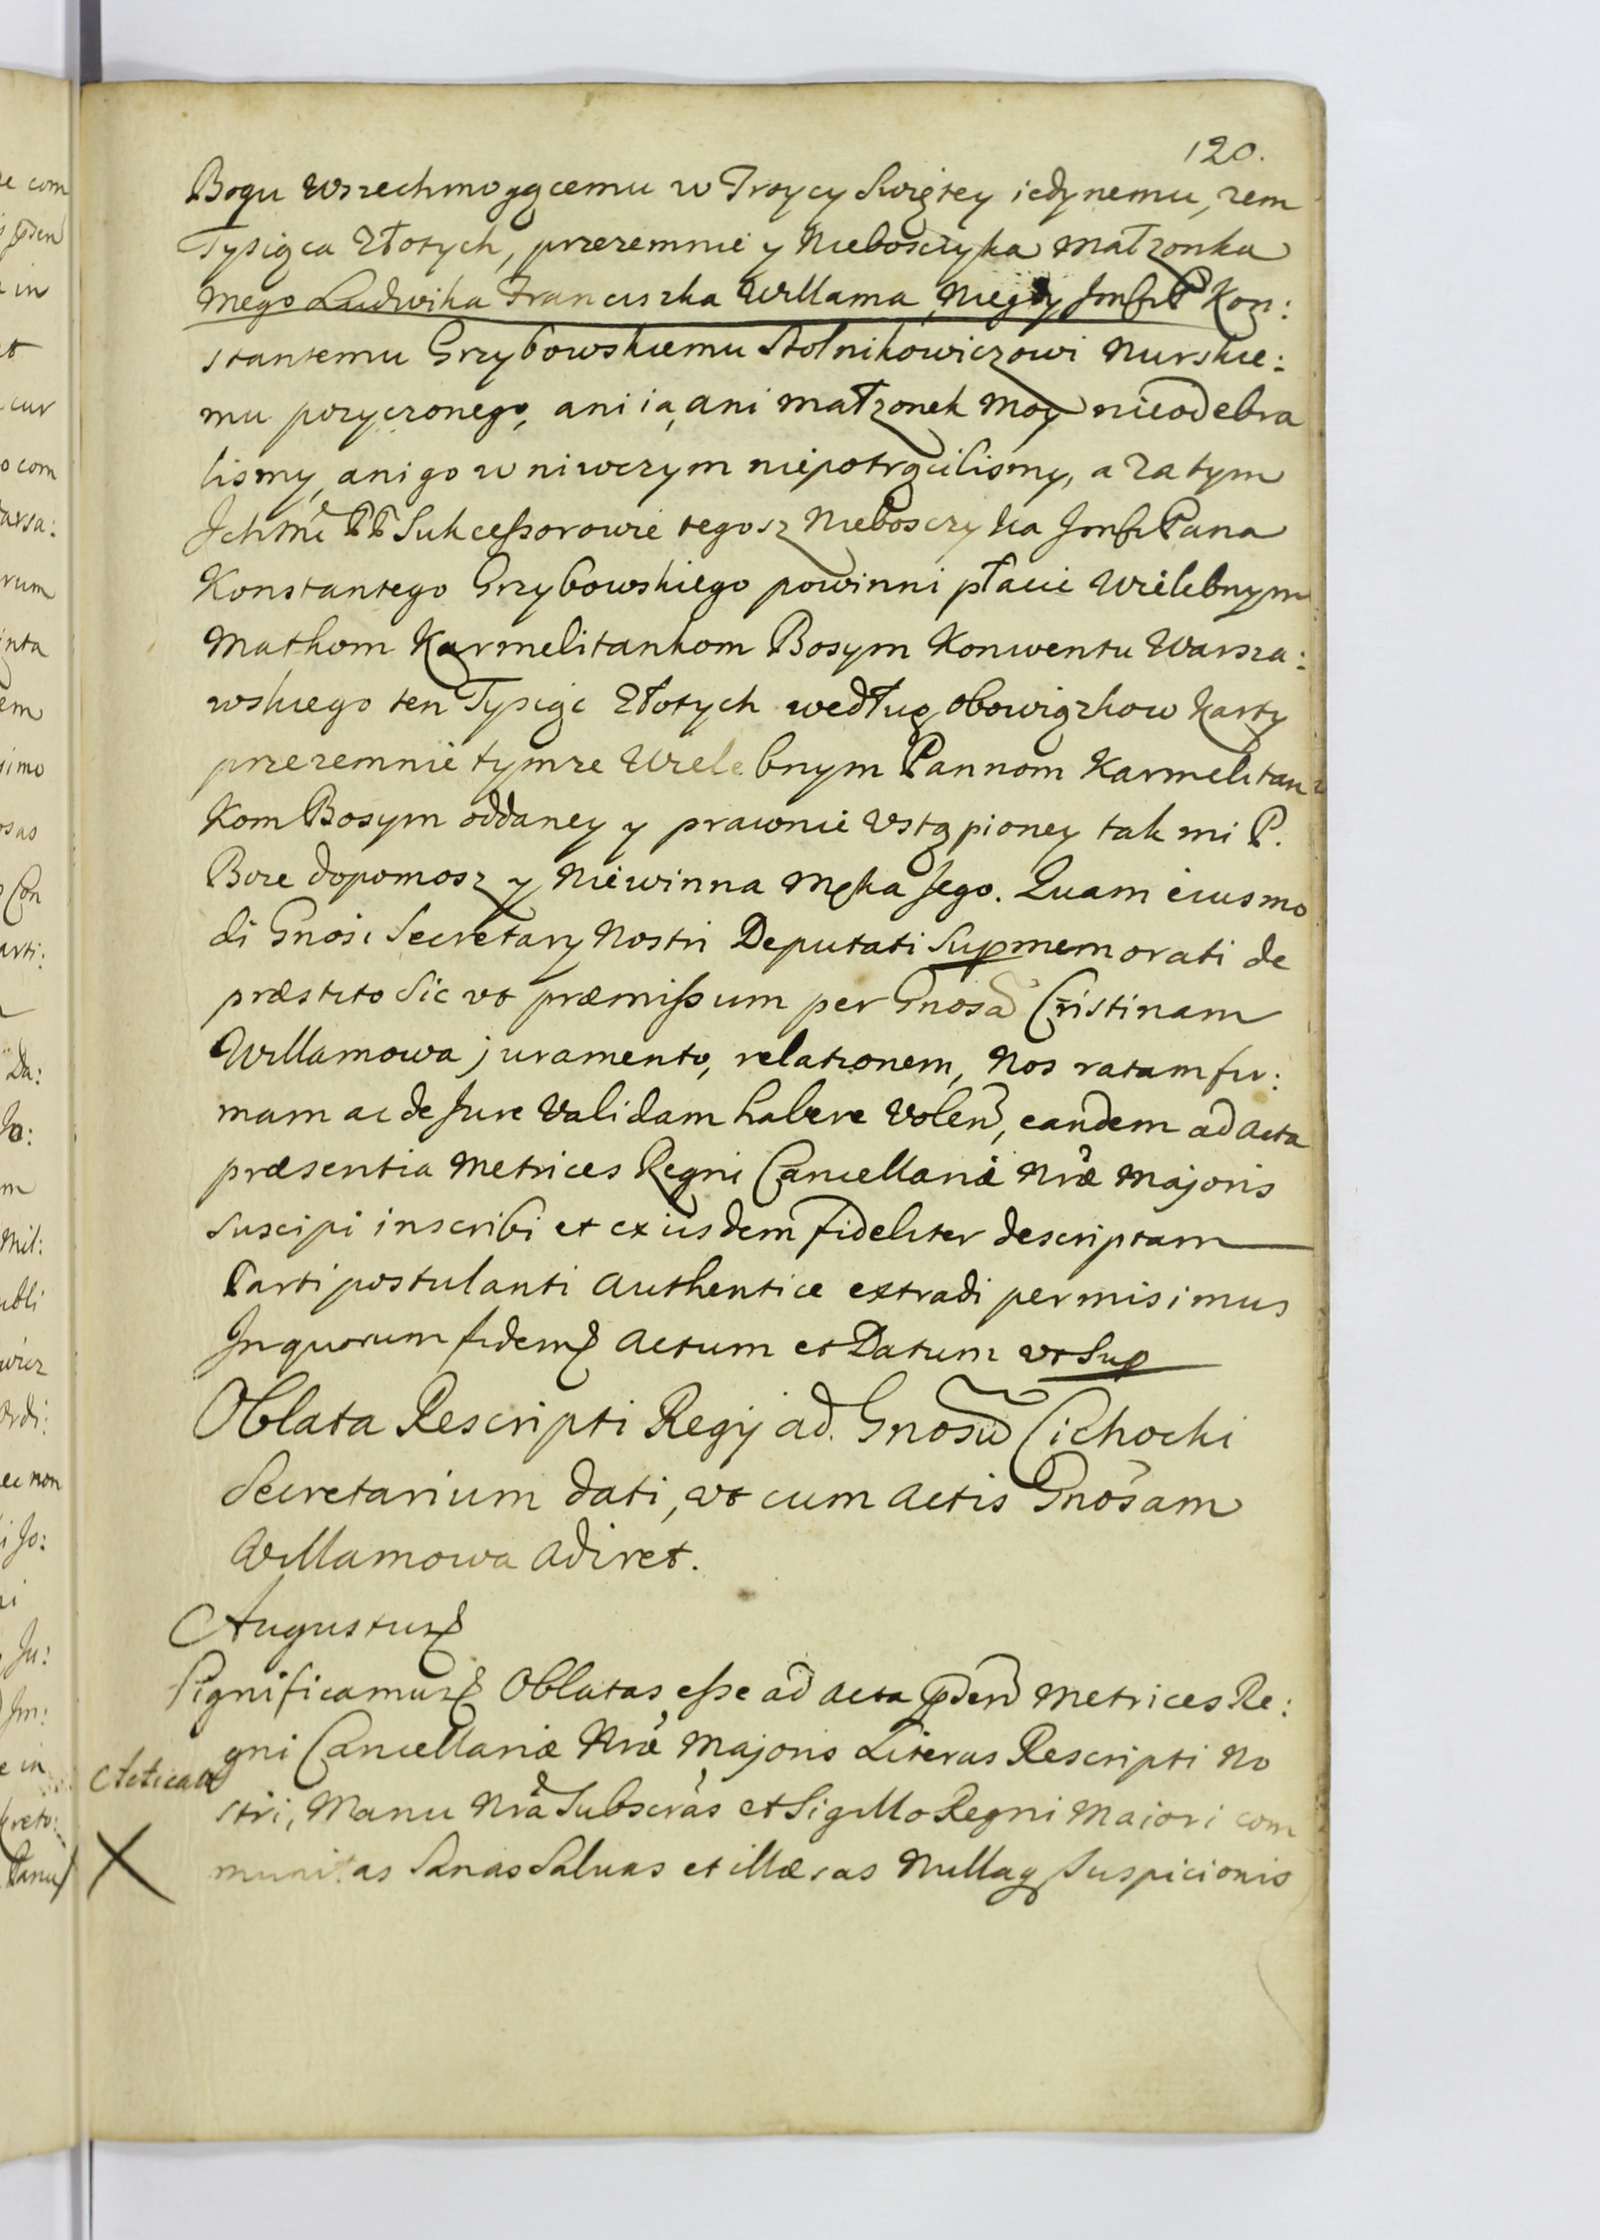 120.
Bogu Wszechmogącemu w Troycy Swiętey iedynemu, zem
Tysiąca Złotych, przezemnie y Nieboszczyka Małzonka
mego Ludwika Franciszka Willama, Niegdy Jmści P Kon:
stantemu Grzybowskiemu Stolnikowiczowi Nurskie:
mu pozyczonego, ani ia, ani małzonek moy nieodebra
lismy, ani go w niwczym niepotrącilismy, a Zatym
Ichmć PP Sukcessorowie tegosz Nieboszczyka Jmści Pana
Konstantego Grzybowskiego powinni płacić Wielebnym
Matkom Karmelitankom Bosym Konwentu Warsza:
wskiego ten Tysiąc Złotych według obowiązkow karty
przezemnie tymze Wielebnym Pannom Karmelitan
kom Bosym oddaney y prawnie Vstąpioney tak mi P.
Boze dopomosz y Niewinna Męka Jego. Quam eiusmo
di Gnosi Secretary Nostri Deputati Supmemorati de
præstito Sic vt præmissum per Gnosā Cristinam
Willamowa juramento, relationem, Nos ratam fir:
mam ac de Jure Validam habere Volen, eandem ad Acta
præsentia Metrices Regni Cancellariæ Nræ Majoris
Suscipi inscribi et ex iisdem fideliter descriptam
Parti postulanti Authentice extradi permisimus
In quorum fidem Actum et Datum vt Sup
Oblata Rescripti Regij ad. Gnosū Cichocki
Secretarium dati, vt cum Actis Gnosam
Willamowa Adiret.
Augustus
Significamus Oblatas esse ad Acta pden Metrices Re:
gni Cancellariæ Nræ Majoris Literas Rescripti No
stri, Manu Nra Subscras et Sigillo Regni Maiori com
munitas Sanas Salvas et illæsas Nullaq Suspicionis